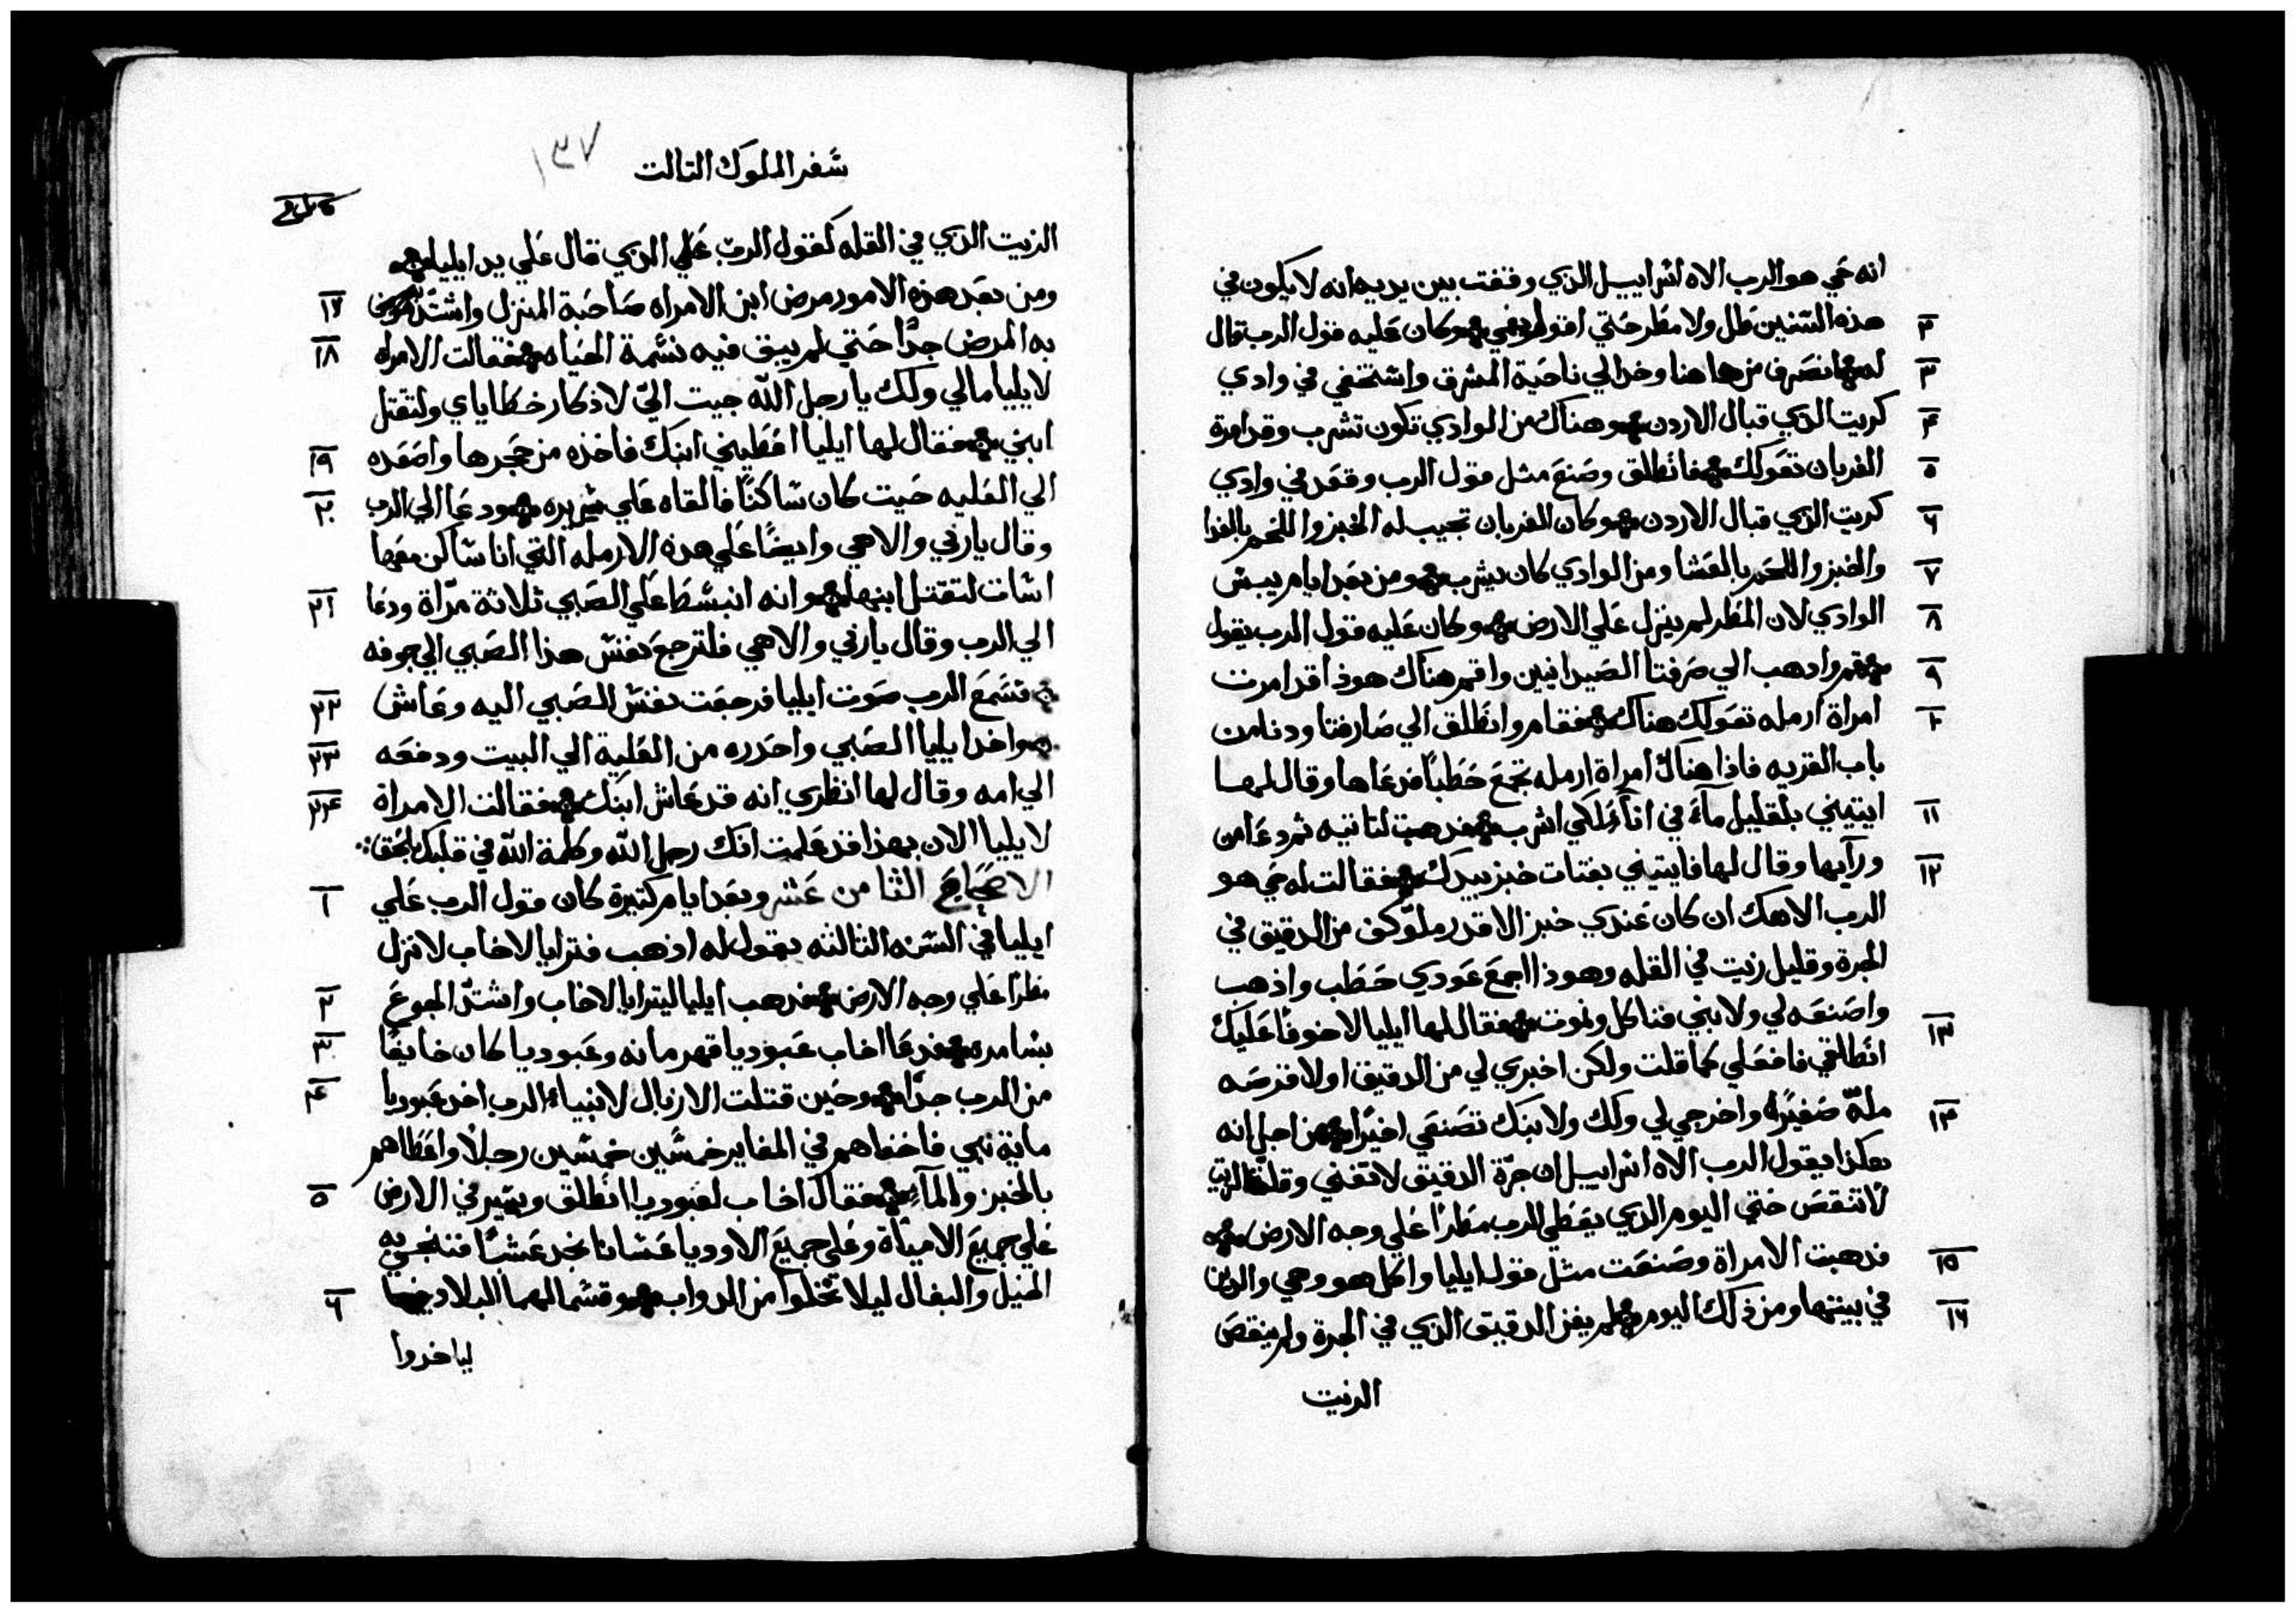 انه حي هو الرب الاه اسراييل الذي وقفت بين يديه انه لا يكون في
هذه السنين طل ولا مطر حتي اقول بفمي وكان عليه قول الرب قال
٢
له انصرف من هاهنا وخد الي ناحية المشرق واستخفي في وادي
٣
كريت الذي قبال الاردن وهناك من الوادي تكون تشرب وقد امرة
٤
الغربان تعولك فانطلق وصنع مثل قول الرب وقعد في وادي
٥
كريت الذي قبال الاردن وكان الغربان تجيب له الخبز واللحم بالغدا
٦
والخبز واللحم بالعشا ومن الوادي كان يشرب ومن بعد ايام يبس
٧
الوادي لان المطر لم ينزل علي الارض وكان عليه قول الرب يقول
٨
قم وادهب الي صرفتا الصيدانيين واقم هناك هوذا قد امرت
٩
امراة ارمله تعولك هناك فقام وانطلق الي صارفتا ودنا من
١٠
باب القريه فاذا هناك امراة ارمله تجمع حطبا فدعاها وقال لها
ايتيني بقليل مآء في انآء لكي اشرب فدهبت لتاتيه تم دعا من
١١
ورآيها وقال لها فايتيني بفتات خبز بيدك فقالت له حي هو
١٢
الرب الاهك ان كان عندي خبز الا قدر ملو كف من الدقيق في
الجرة وقليل زيت في القله وهوذا اجمع عودي حطب واذهب
واصنعه لي ولابني فناكل ونموت فقال لها ايليا لا خوفا عليك
١٣
انطلقي فافعلي كما قلت ولكن اخبزي لي من الدقيق اولا قرصه
ملة صغيرة واخرجي لي ولك ولابنك تصنعي اخيرا من اجل انه
١٤
هكذا يقول الرب الاه اسراييل ان جرة الدقيق لا تفني وقلة الزيت
لا تنقص حتي اليوم الذي يعطي الرب مطرا علي وجه الارض
فدهبت الامراة وصنعت مثل قول ايليا واكل هو وهي والدين
١٥
في بيتها ومن ذلك اليوم لم يفن الدقيق الذي في الجرة ولم ينقص
١٦
الزيت
سفر الملوك التالت
١٣٧
الزيت الذي في القله كقول الرب الذي قال علي يد ايليا
ومن بعد هذه الامور مرض ابن الامراه صاحبة المنزل واشتد
١٧
به المرض جدا حتي لم يبق فيه نسمة الحياه فقالت الامراه
١٨
لايليا مالي ولك يا رجل الله جيت الي لاذكار خطاياي ولتقتل
ابني فقال لها ايليا اعطيني ابنك فاخذه من حجرها واصعده
١٩
الي العليه حيت كان ساكنا فالقاه علي سريره ودعا الي الرب
٢٠
وقال يا ربي والاهي وايضا علي هذه الارمله التي انا ساكن معها
اسات لتقتل ابنها وانه انبسط علي الصبي ثلاثة مراة ودعا
٢١
الي الرب وقال يا ربي والاهي فلترجع نفس هذا الصبي الي جوفه
فسمع الرب صوت ايليا فرجعت نفس الصبي اليه وعاش
٢٢
واخد ايليا الصبي واحدره من العلية الي البيت ودفعه
٢٣
الي امه وقال لها انظري انه قد عاش ابنك فقالت الامراة
٢٤
لايليا الان بهذا قد علمت انك رجل الله وكلمة الله في قلبك بالحق
الاصحاح الثامن عشر وبعد ايام كتيرة كان قول الرب علي
١
ايليا في السنه التالته يقول له اذهب فترايا لاخاب لانزل
مطرا علي وجه الارض فدهب ايليا ليترايا لاخاب واشتد الجوع
٢
بسامره فدعا اخاب عبوديا قهرمانه وعبوديا كان خايفا
٣
من الرب جدا وحين قتلت الازبال لانبياء الرب اخد عبوديا
٤
ماية نبي فاخفاهم في المغاير خمسين خمسين رجلا واعطاهم
بالخبز والمآء فقال اخاب لعبوديا انطلق وسير في الارض
٥
علي جميع الامياة وعلي جميع الاوديا عسانا نجد عشبا فننجي به
الخيل والبغال ليلا تخلوا من الدواب وقسما لهما البلاد
٦
لياخدوا